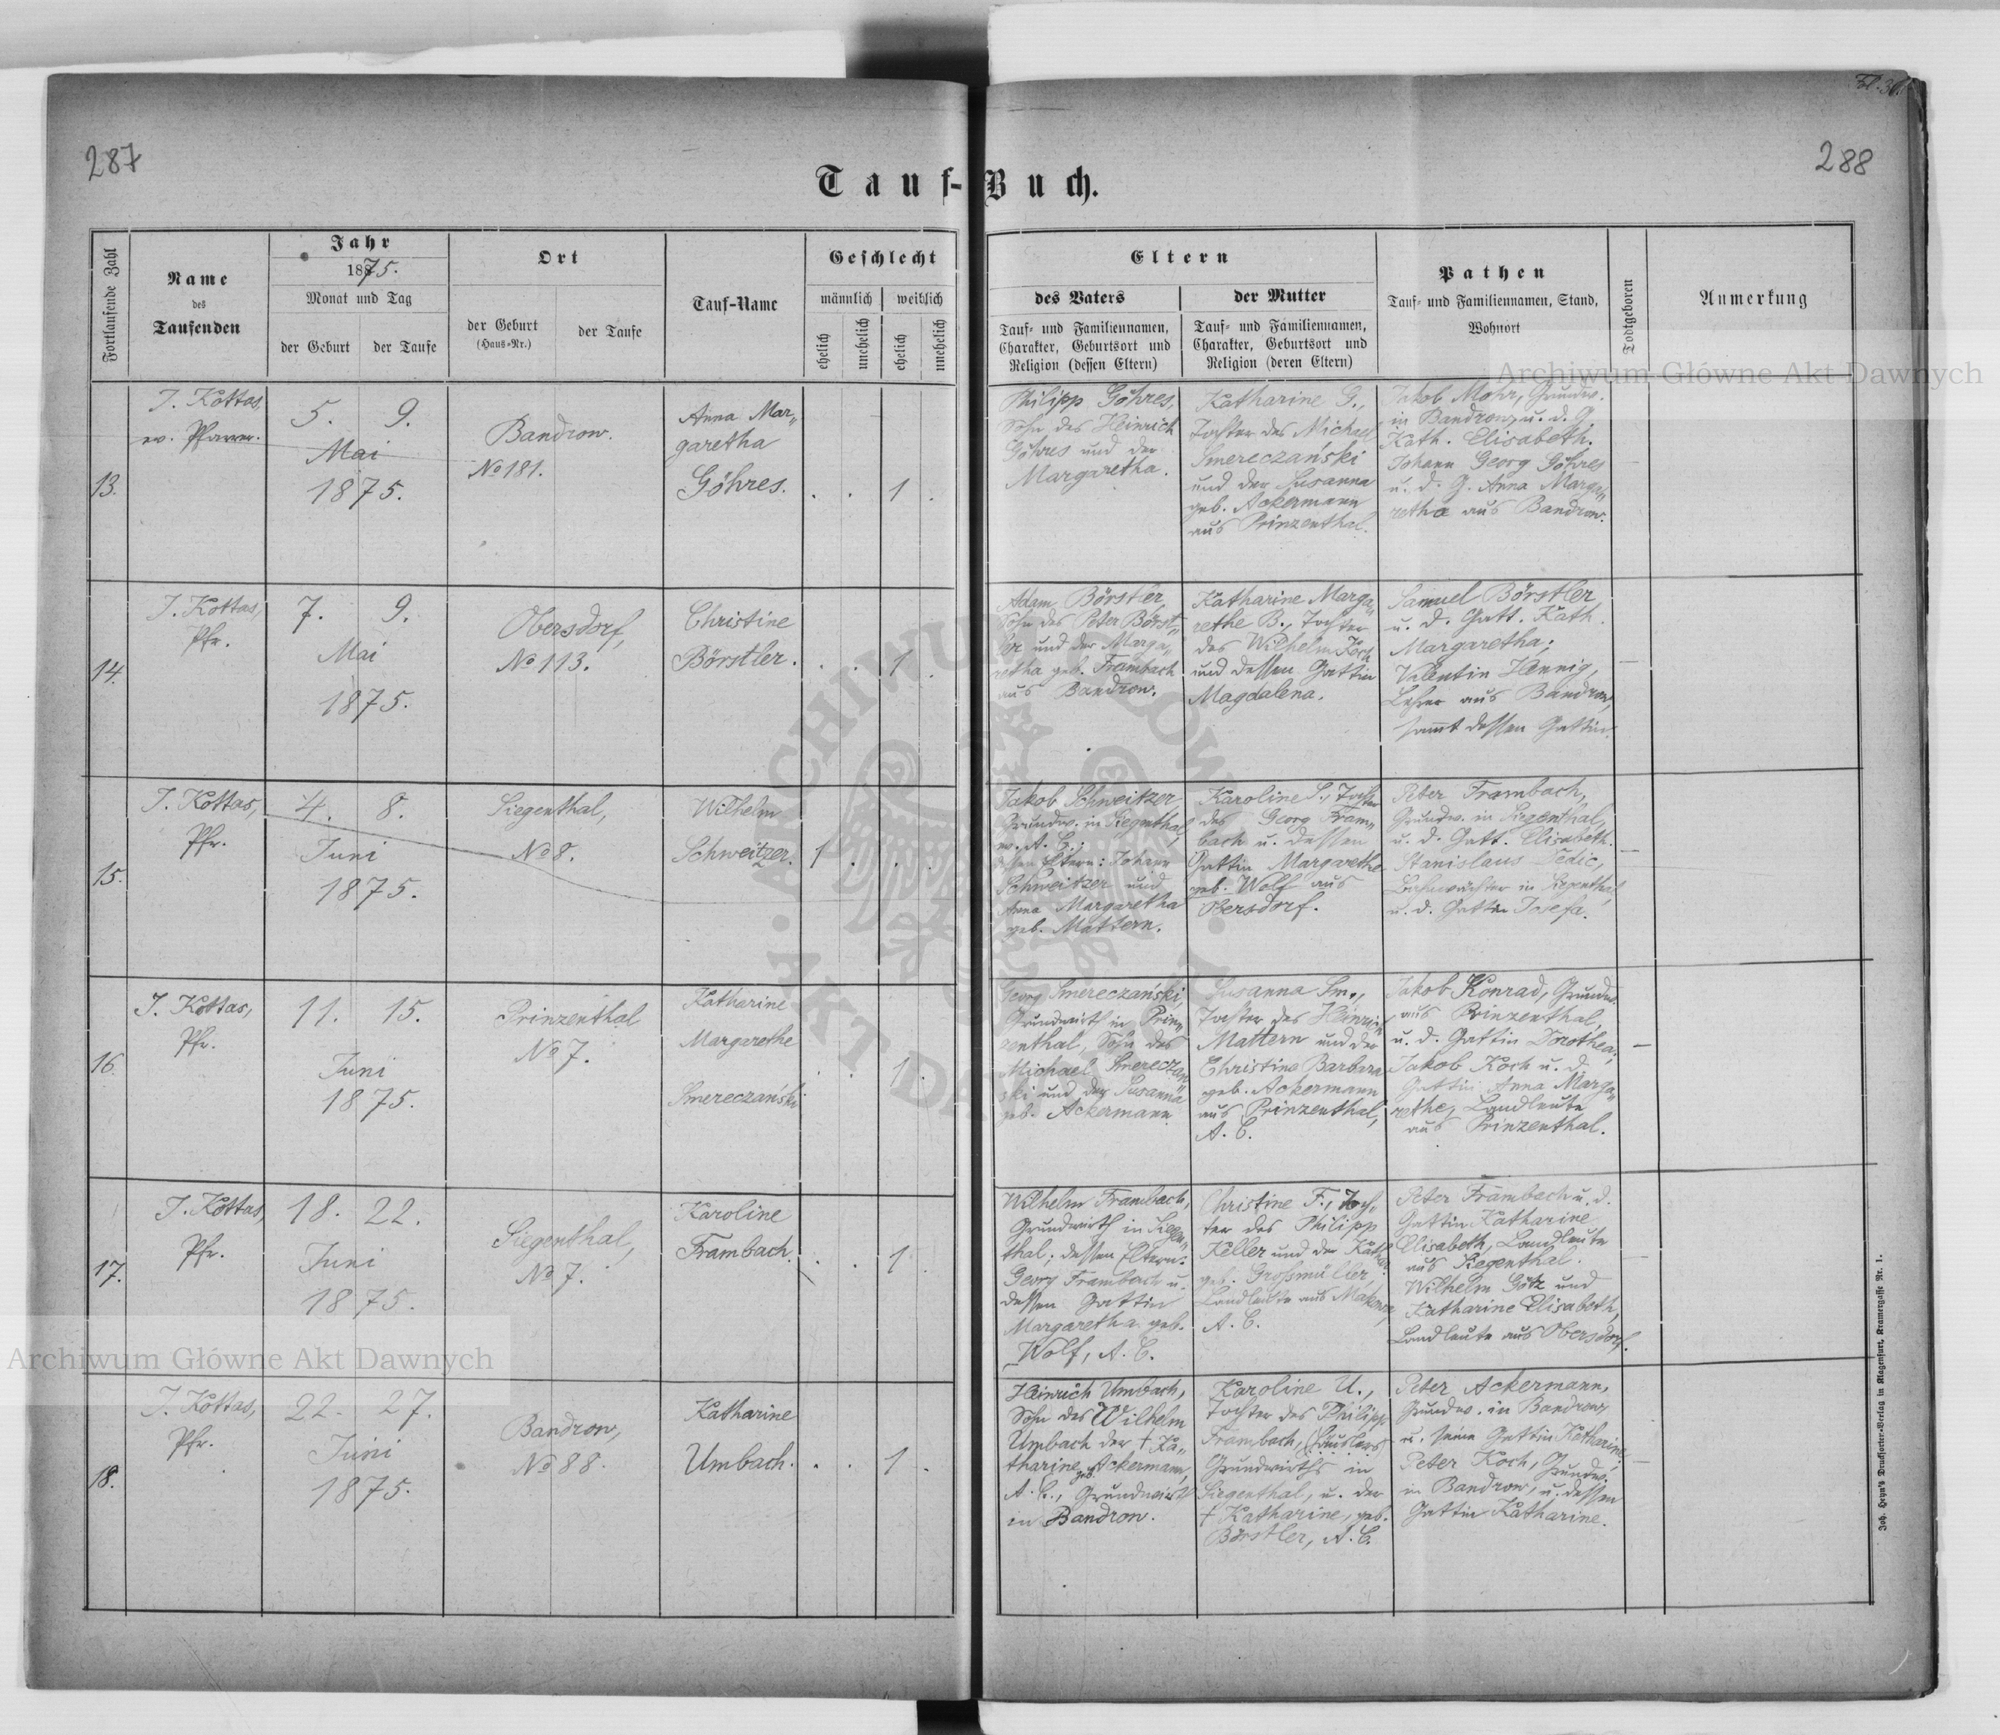 287
288
Tauf-Buch.
Fortlaufende Zahl
Name
des
Taufenden
Jahr
1875.
Monat und Tag
der Geburt
der Taufe
Ort
der Geburt
(Haus-Nr.)
der Taufe
Tauf-Name
Geschlecht
männlich
weiblich
ehelich
unehelich
ehelich
unehelich
Eltern
des Vaters
Tauf- und Familiennamen,
Charakter, Geburtsort und
Religion (dessen Eltern)
der Mutter
Tauf- und Familiennamen,
Charakter, Geburtsort und
Religion (deren Eltern)
Pathen
Tauf- und Familiennamen, Stand,
Wohnort
Todtgeboren
Anmerkung
13.
J. Kottas,
ev. Pfarrer.
5. 9.
Mai
1875.
Bandrow.
No 181.
Anna Mar„
garetha
Göhres.
. . 1 .
Philipp Göhres,
Sohn des Heinrich
Göhres und der
Margaretha.
Katharine G.,
Tochter des Michael
Smereczański
und der Susanna
geb. Ackermann
aus Prinzenthal.
Jakob Mohr, Grundw.
in Bandrow, u. d. G.
Kath. Elisabeth.
Johann Georg Göhres
u. d. G. Anna Marga„
retha aus Bandrow.
14.
J. Kottas,
Pfr.
7. 9.
Mai
1875.
Obersdorf,
No 113.
Christine
Börstler.
. . 1 .
Adam Börstler,
Sohn des Peter Börst„
ler und der Marga„
retha geb. Frambach
aus Bandrow.
Katharine Marga„
rethe B., Tochter
des Wilhelm Koch
und dessen Gattin
Magdalena.
Samuel Börstler
u. d. Gatt. Kath.
Margaretha;
Valentin Hennig,
Lehrer aus Bandrow,
sammt dessen Gattin.
15.
J. Kottas,
Pfr.
4. 8.
Juni
1875.
Siegenthal,
No 8.
Wilhelm
Schweitzer.
1 . . .
Jakob Schweitzer,
Grundw. in Siegenthal,
ev. A. C.;
dessen Eltern: Johann
Schweitzer und
Anna Margaretha
geb. Mattern.
Karoline S., Tochter
des Georg Fram„
bach u. dessen
Gattin Margarethe
geb. Wolf aus
Obersdorf.
Peter Frambach,
Grundw. in Siegenthal,
u. d. Gatt. Elisabeth.
Stanislaus Dedic,
Bahnwächter in Siegenthal,
u. d. Gattin Josefa.
16.
J. Kottas,
Pfr.
11. 15.
Juni
1875.
Prinzenthal
No 7.
Katharine
Margarethe
Smereczański
. . 1 .
Georg Smereczański,
Grundwirth in Prin„
zenthal, Sohn des
Michael Smereczań„
ski und der Susanna
geb. Ackermann.
Susanna Sm.,
Tochter des Heinrich
Mattern und der
Christine Barbara
geb. Ackermann
aus Prinzenthal,
A. C.
Jakob Konrad, Grundw.
aus Prinzenthal,
u. d. Gattin Dorothea;
Jakob Koch u. d.
Gattin Anna Marga„
rethe, Landleute
aus Prinzenthal.
17.
J. Kottas,
Pfr.
18. 22.
Juni
1875.
Siegenthal,
No 7.
Karoline
Frambach.
. . 1 .
Wilhelm Frambach,
Grundwirth in Siegen„
thal; dessen Eltern:
Georg Frambach u.
dessen Gattin
Margaretha geb.
Wolf, A. C.
Christine F., Toch„
ter des Philipp
Keller und der Kathar.
geb. Großmüller,
Landleute aus Makowa,
A. C.
Peter Frambach u. d.
Gattin Katharine
Elisabeth, Landleute
aus Siegenthal.
Wilhelm Götz und
Katharine Elisabeth,
Landleute aus Obersdorf.
18.
J. Kottas,
Pfr.
22. 27.
Juni
1875.
Bandrow,
No 88.
Katharine
Umbach.
. . 1 .
Heinrich Umbach,
Sohn des Wilhelm
Umbach der † Ka„
tharine geb. Ackermann,
A. C., Grundwirth
in Bandrow.
Karoline U.,
Tochter des Philipp
Frambach, (Häuslers)
Grundwirths in
Siegenthal, u. der
† Katharine, geb.
Börstler, A. C.
Peter Ackermann,
Grundw. in Bandrow
u. seine Gattin Katharine;
Peter Koch, Grundw.
in Bandrow, u. dessen
Gattin Katharine.
Joh. Heyn's Drucksorten-Verlag in Klagenfurt, Kramergasse Nr. 1.
Archiwum Główne Akt Dawnych
Archiwum Główne Akt Dawnych